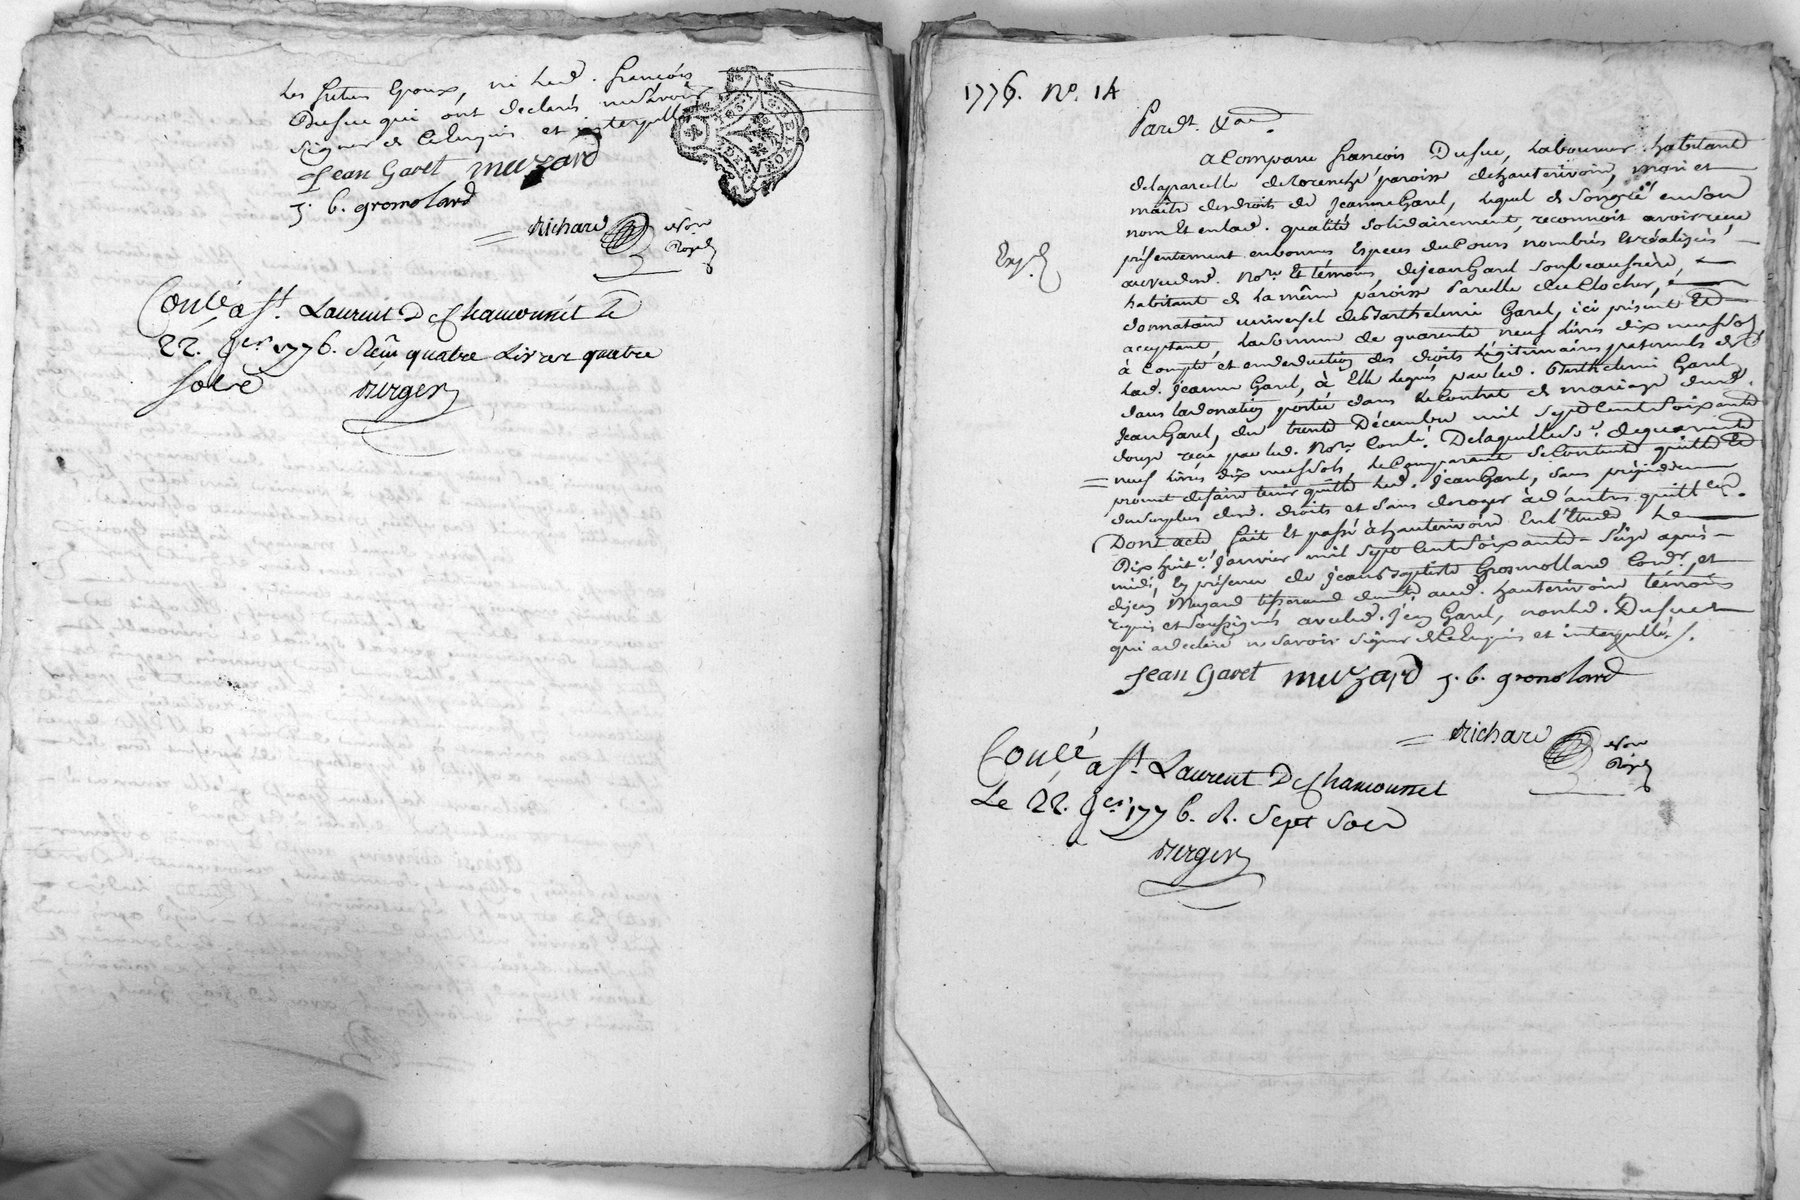 les futurs Epoux, ni led. françois
Dufue qui ont declaré ne sçavoir
signer de ce Enquis et interpellés
Jean Garet muzard
j. b. gromolard
Richard Nore
Royal
Conlé a St. Laurent D Chamousset le
22. Jer. 1776. Reçu quatre Livres quatre
sols
Berger
1776. No. 14
Pardt. &a.
a Comparu françois Dufue, Laboureur habitant
delaparcelle de paroisse dehauterivoire, mari et
maitre desdroits de Jeanne Garel, lequel de Songré en son
nom Et enlad. qualité solidairement, reconnoit avoir reçu
présentement enbonnes Especes du Cours nombrés Et réalisées
auvudesd. Nore. Et témoins, dejean Garel sonbeaufrere,
habitant de la même paroisse Parcelle du Clocher,
donnataire universel de Barthelemi Garel, ici présent Et
acceptant, La somme de quarente neuf Livres dix neuf sols
à compte et endeduction des droits Légitimaires paternels de
Lad. Jeanne Garel, à Elle legués par led. Barthelemi Garel
dans la donation portée dans Le Contrat de mariage dud.
Jean Garel, du trente Décembre mil sept Cent Soixante
douze reçu par led. Nore. Conlé. De laquelle Se. de quarente
neuf Livres dix neuf sols, Le Comparant se Contente quitte Et
promet de faire tenir quitte led. Jean Garel, sans préjudice
du surplus desd. droits et sans deroger à d'autres quittces.
Dont acte fait Et passé à hauterivoire En l'Etude Le
Dix huit Janvier mil sept Cent Soixante-Seize après-
midi, En présence de Jean Baptiste Gromolard Condr. et
dejean Muzard tisserand demt. aud. hauterivoire témoins
requis et soussignés avec led. Jean Garel, non led. Dufue
qui adeclaré ne savoir signer de ce Enquis et interpellé.
Expé.
Jean Garet muzard j. b. gromolard
Richard Nore
Royal
Conlé a St. Laurent D Chamousset
Le 22. Jer. 1776. R. Sept Sols
Berger